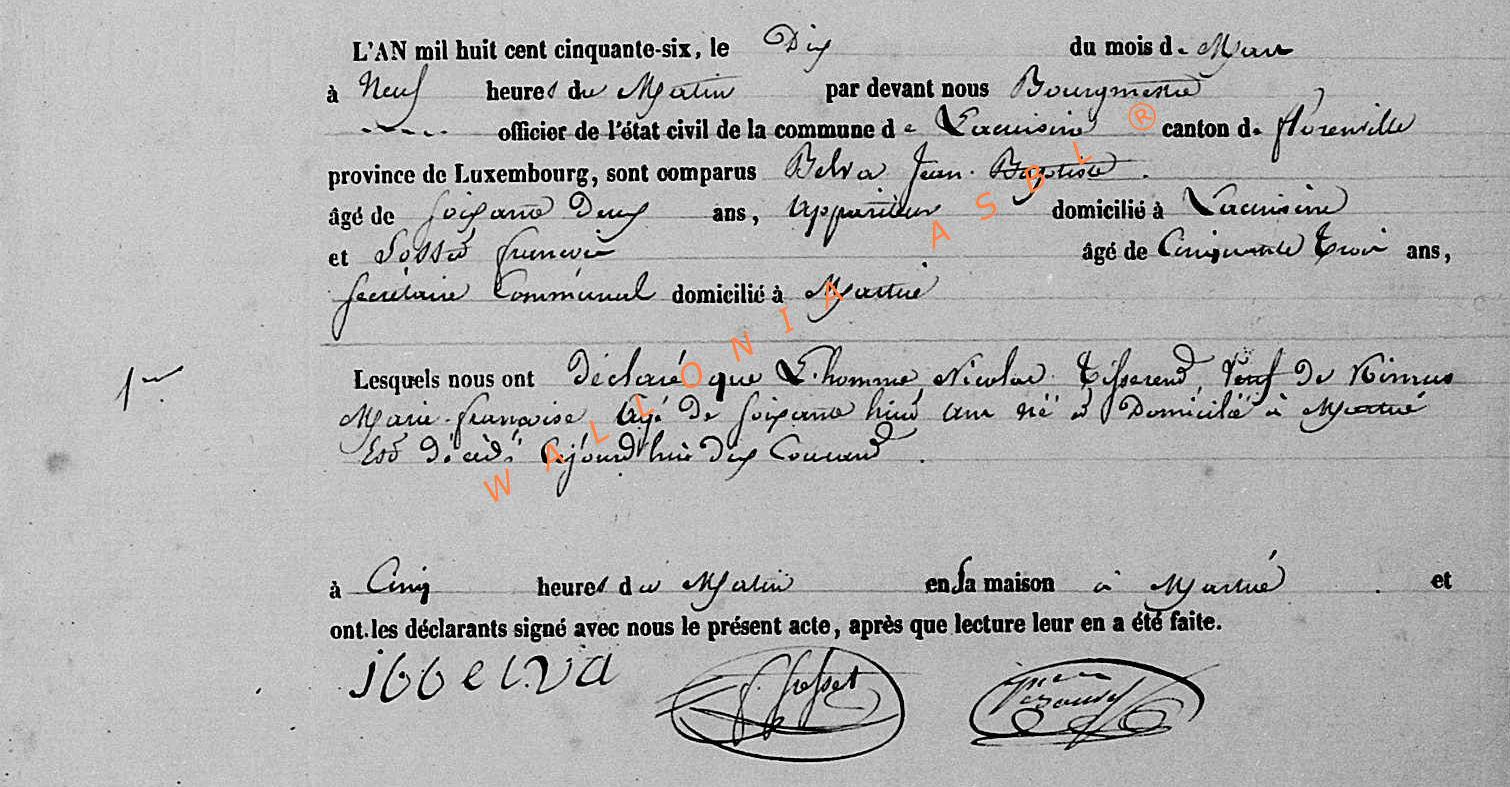 L'AN mil huit cent cinquante-six, le Dix du mois de Mars
à Neuf heures du Matin par devant nous Bourgmestre
officier de l'état civil de la commune de Lacuisine canton de florenville
province de Luxembourg, sont comparus Belva Jean Baptiste
âgé de soixante Deux ans, Appariteur domicilié à Lacuisine
et françois âgé de Cinquante Trois ans,
secrétaire Communal domicilié à Martué
1er Lesquels nous ont Déclaré que L'homme Nicolas Tisserend, Veuf De
Marie françoise Agé De soixante huit ans né à Domicilié à Martué
Est décédé Ajourd'hui dix Courand
à Cinq heures du Matin en sa maison à Martué et
ont les déclarants signé avec nous le présent acte, après que lecture leur en a été faite.
jbbelva
WALLONIA ASBL ®